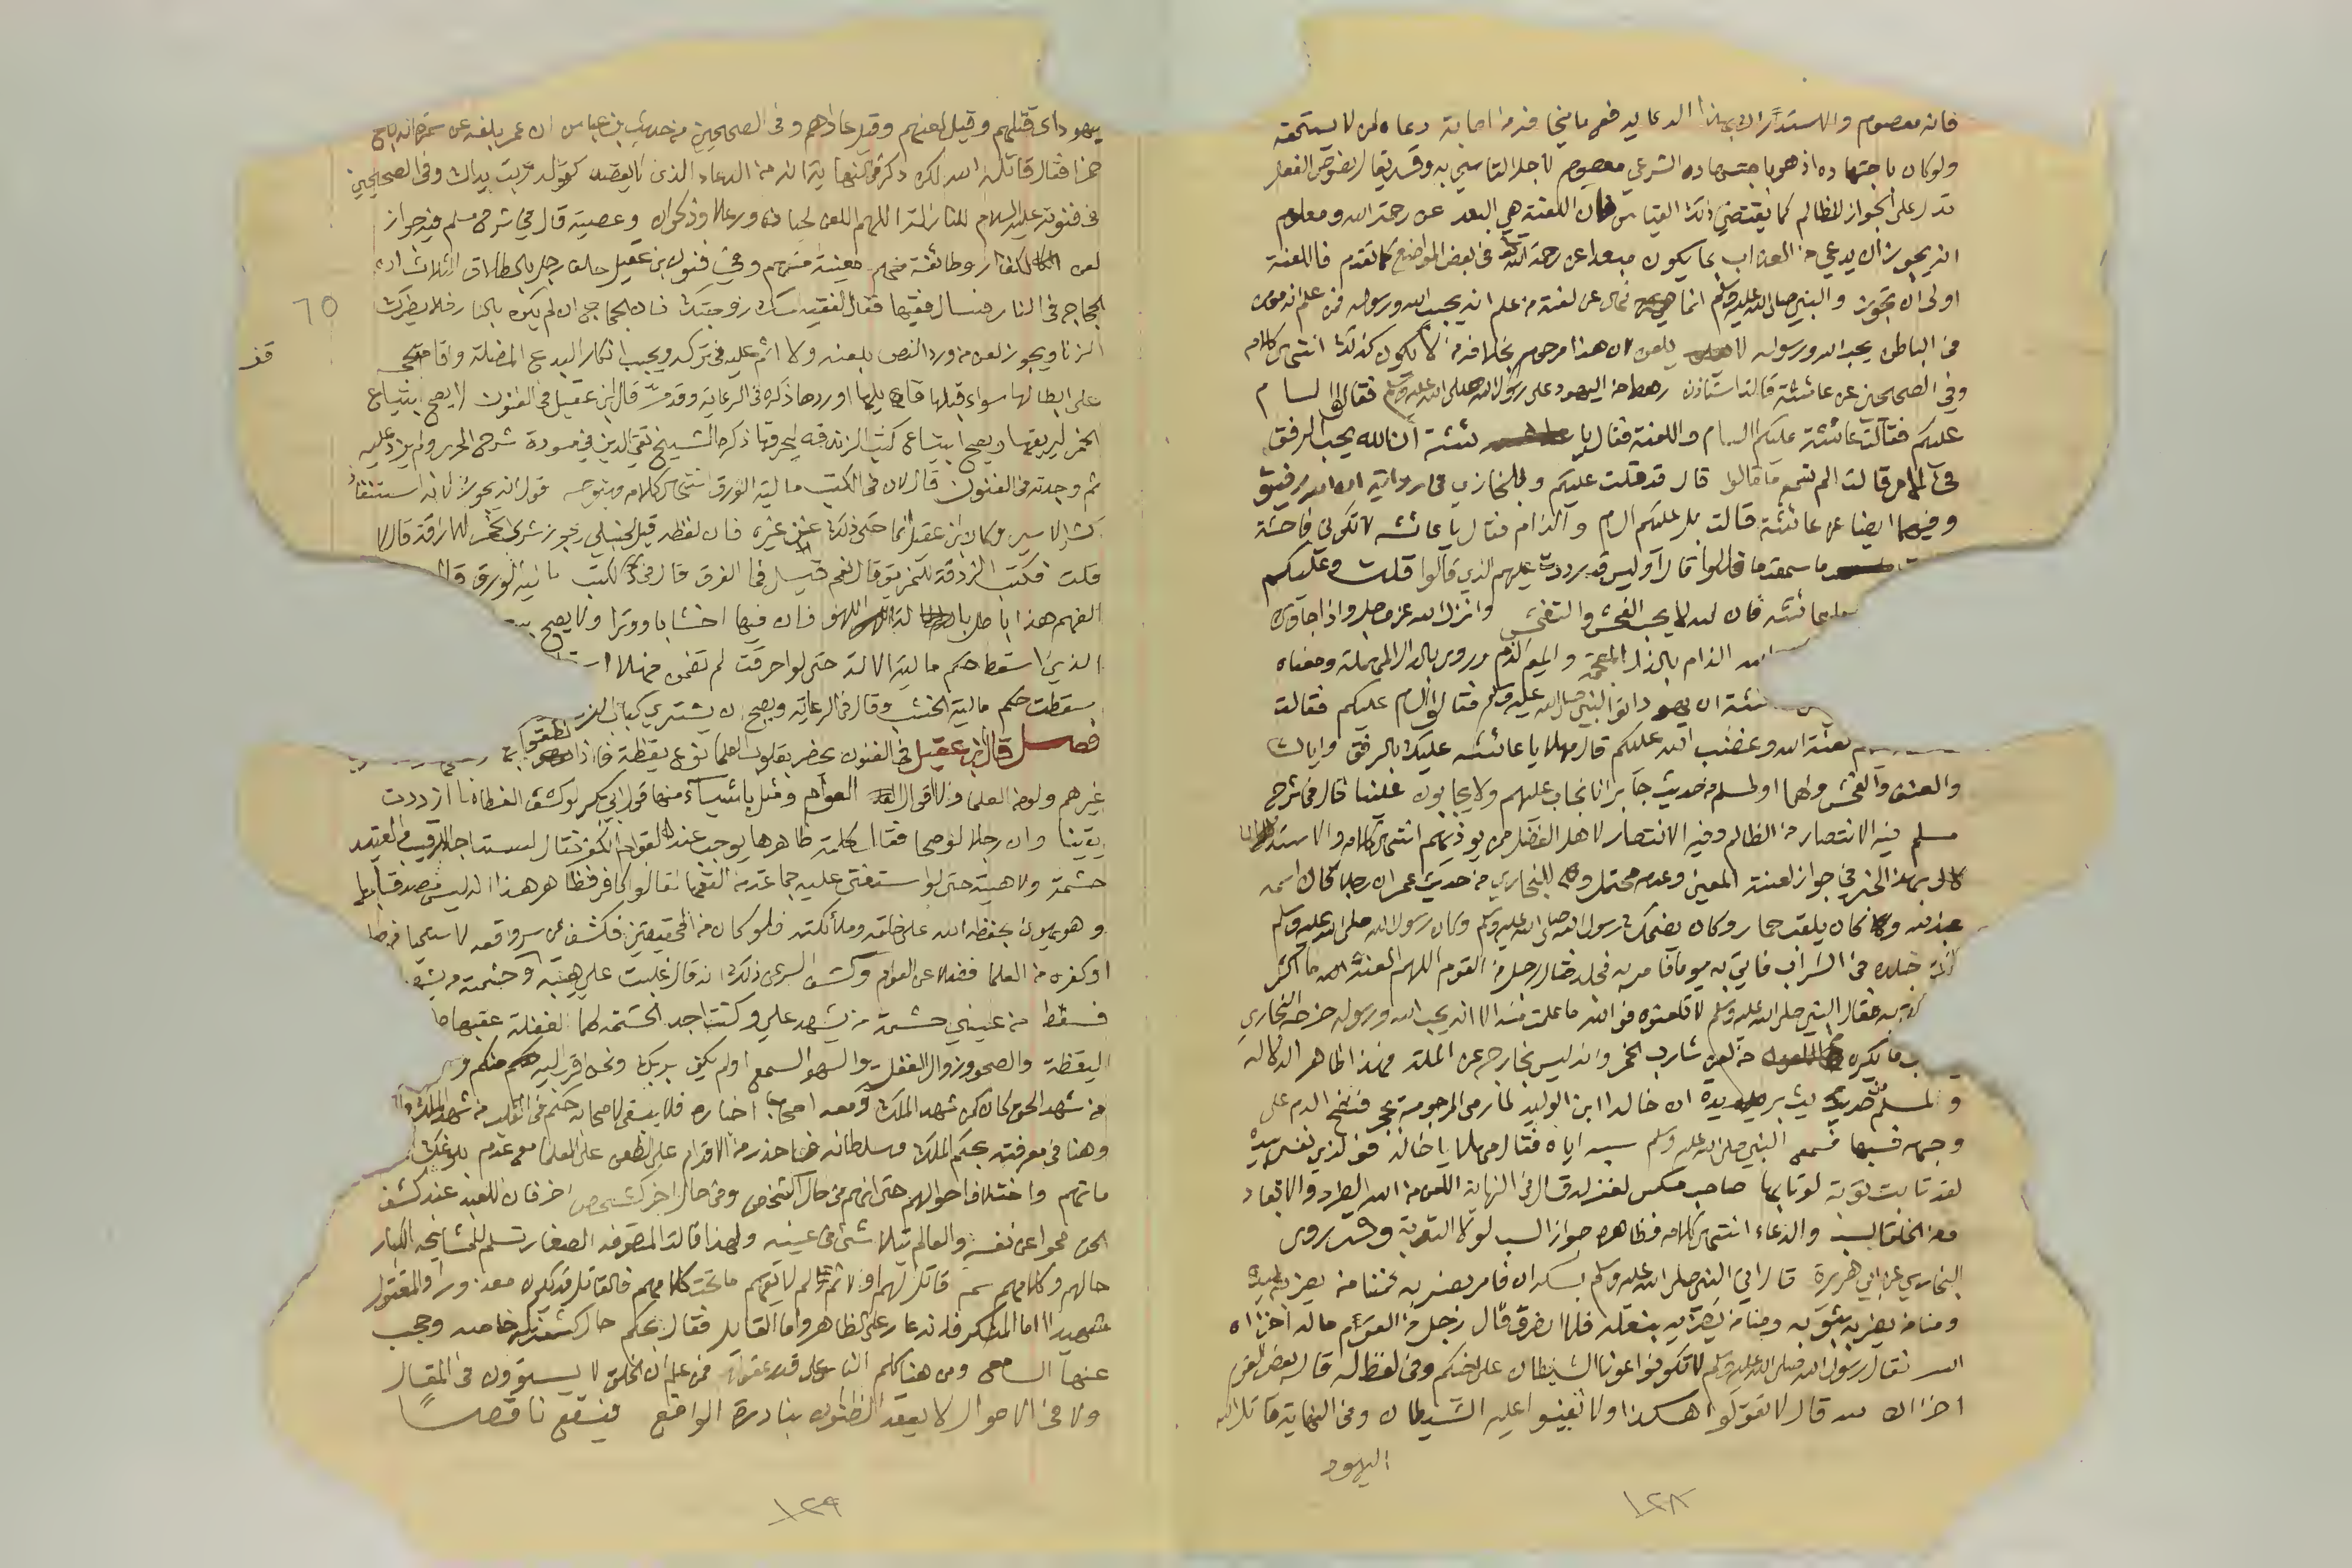 فانه معصوم والاستدلال بهذا الدعاء فيه ما يخافه من اجابة دعاه لمن لا يستحقه
ولو كان باجتهاده اذ هو باجتهاده الشرعي معصوم لاجل التاسي به وقد يقال نصوص الفعل
تدل على الجواز للظالم كما يقتضي ذلك القياس فان اللعنة هي البعد عن رحمة الله ومعلوم
انه يجوز ان يدعى من العذاب بما يكون مبعدا عن رحمة الله في بعض المواضع كما تقدم فاللعنة
اولى ان تجوز والنبي صلى الله عليه وسلم انما نهى عن لعنة من علم انه يحب الله ورسوله فمن علم انه مومن
في الباطن يحب الله ورسوله لا يلعن لان هذا مرحوم بخلاف من لا يكون كذلك انتهى كلامه
وفي الصحيحين عن عائشة قالت استاذن رهط من اليهود على رسول الله صلى الله عليه وسلم فقالوا السام
عليكم فقالت عائشة عليكم السام واللعنة فقال يا عائشة ان الله يحب الرفق
في الامر قالت الم تسمع ما قالوا قال قد قلت عليكم وللبخاري في رواية ان الله رفيق
وفيهما ايضا عن عائشة قالت بل عليكم السام والذام فقال يا عائشة لا تكوني فاحشة
ما سمعت ما قالوا قال اوليس قد رددت عليهم الذي قالوا قلت وعليكم
عائشة فان الله لا يحب الفحش والتفحش وانزل الله عز وجل واذا جاوك
الذام بالذال المعجمة والميم الذم وروي بالدال المهملة ومعناه
ئشة ان يهود اتوا النبي صلى الله عليه وسلم فقالوا السام عليكم فقالت
لعنة الله وغضب الله عليكم قال مهلا يا عائشة عليك بالرفق واياك
والعنف والفحش ولهما او لمسلم من حديث جابر انا نجاب عليهم ولا يجابون علينا قال في شرح
مسلم فيه الانتصار من الظالم وفيه الانتصار لاهل الفضل ممن يوذيهم انتهى كلامه والاستد
لال بهذا الخبر في جواز لعنة المعين وعدمه محتمل وللبخاري من حديث عمر ان رجلا كان اسمه
عبد الله وكان يلقب حمار وكان يضحك رسول الله صلى الله عليه وسلم وكان رسول الله صلى الله عليه وسلم
جلده في الشراب فاتي به يوما فامر به فجلد فقال رجل من القوم اللهم العنه ما اكثر
به فقال النبي صلى الله عليه وسلم لا تلعنوه فوالله ما علمت منه الا انه يحب الله ورسوله خرجه البخاري
ب ما يكره من لعن شارب الخمر وانه ليس بخارج عن الملة فهذا ظاهر الدلالة
ولمسلم من حديث بريدة ان خالد ابن الوليد لما رمى المرجومة بحجر فنضح الدم على
وجهه فسبها فسمع النبي صلى الله عليه وسلم سبه اياه فقال مهلا يا خالد فوالذي نفسي بيده
لقد تابت توبة لو تابها صاحب مكس لغفر له قال في النهاية اللعن من الله الطرد والابعاد
ومن الخلق السب والدعاء انتهى كلامه فظاهره جواز السب لولا التوبة وقد روى
البخاري عن ابي هريرة قال اتي النبي صلى الله عليه وسلم بسكران فامر بضربه فمنا من يضربه بيده
ومنا من يضربه بثوبه ومنا من يضربه بنعله فلما انصرف قال رجل من القوم ماله اخزاه
الله فقال رسول الله صلى الله عليه وسلم لا تكونوا عون الشيطان على اخيكم وفي لفظ له قال بعض القوم
اخزاك الله قال لا تقولوا هكذا ولا تعينوا عليه الشيطان وفي النهاية قاتل الله
اليهود
١٢٨
يهود اي قتلهم وقيل لعنهم وقيل عاداهم وفي الصحيحين من حديث ابن عباس ان عمر بلغه عن سمرة انه باع
خمرا فقال قاتل الله سمرة ذكره في النهاية انه من الدعاء الذي لا يقصد كقوله تربت يداك وفي الصحيحين
في قنوته عليه السلام للنازلة اللهم العن لحيان ورعلا وذكوان وعصية قال في شرح مسلم فيه جواز
لعن الكفار وطائفة معينة منهم وفي فنون ابن عقيل حلف رجل بالطلاق الثلاث ان
الحجاج في النار فسال فقيها فقال الفقيه امسك زوجتك فان الحجاج ان لم يكن بالنار فلا يضرك
الزنا ويجوز لعن من ورد النص بلعنه ولا اثم عليه في تركه ويجب انكار البدع المضلة واقامة الحجة
على ابطالها سواء قبلها قايلها او ردها ذكره في الرعاية وقد مر قال ابن عقيل في الفنون لا يصح ابتياع
الخمر ليريقها ويصح ابتياع كتب الزندقة ليحرقها ذكره الشيخ تقي الدين في مسودة شرح المحرر ولم يزد عليه
ثم وجدته في الفنون قال لان في الكتب مالية الورق انتهى كلامه ويتوجه قول انه يجوز لانه استنقاذ
كشراء الاسير وكان ابن عقيل انما حكى ذلك عن غيره فان لفظه قيل لحنبلي يجوز شراء الخمر للاراقة قال لا
قلت فكتب الزندقة للتمزيق قال نعم قيل فما الفرق قال في الكتب مالية الورق قال
الفهم هذا باطل بالة اللهو فان فيها اخشابا ووترا ولا يصح بيع
الذي اسقط حكم مالية الالة حتى لو احرقت لم تضمن فهلا
سقطت حكم مالية الخشب وقال في الرعاية ويصح ان يشتري كتاب
فصل قال ابن عقيل في الفنون يحضر بقلوب العلماء نوع يقظة فاذا نطقوا
غيرهم ولوم العلماء والاقوال العوام ومثل باشياء منها قول ابي بكر لو كشف الغطاء ما ازددت
يقينا وان رجلا لو صحا فقال كلمة ظاهرها يوجب عند القوم الكفر فقال لست اجد للرقيب والعتيد
حشمة ولا هيبة حتى لو استفتى عليه جماعة من الفقهاء لقالوا كافر فظاهر هذا انه ليس مصدقا بها
وهو يهون بحفظة الله على خلقه وملائكته فلو كان من المحققين فكشف عن سر واقعه لاستحيا من
او كفره من العلماء فضلا عن العوام وكشف السر عن ذلك انه قال غلبت علي هيبة وحشمة من يشهد
فسقط من عيني حشمة من يشهد علي وكنت اجد الحشمة لهما لغفلة عقبها
اليقظة والصحو وزوال الغفلة والسهو السمع اولم يكف بربك ونحن اقرب اليه منكم
من شهد الحق كان كمن شهد الملك ومعه اصحاب اخباره فلا يبقى لاصحابه حكم في القلب من شهد الملك
وهنا في معرفته بحكم الملك وسلطانه فاحذر من الاقدام على الطعن على العلماء مع عدم بلوغك
ماتهم واختلاف احوالهم حتى انهم في حال كشخص وفي حال اخر كشخص اخر فان للعبد عند كشف
الحق محوا عن نفسه والعالم يتلاشى في عينه ولهذا قالت المتصوفة الصغار تسلم للمشايخ الكبار
حالهم وكلامهم سم قاتل لهم ولم لا يفهم ما تحت كلامهم فالقاتل قد يكون معذورا والمقتول
شهيدا اما المنكر فانه غار على الظاهر واما القايل فقال بحكم حال كشف له خاصة وحجب
عنها السامع ومن هنا كلم الناس على قدر عقولهم فمن علم ان الخلق لا يستوون في المقال
ولا في الاحوال لا يعقد الظنون ببادرة الواقع فيقع ناقصا
٦٥
قف
١٢٩